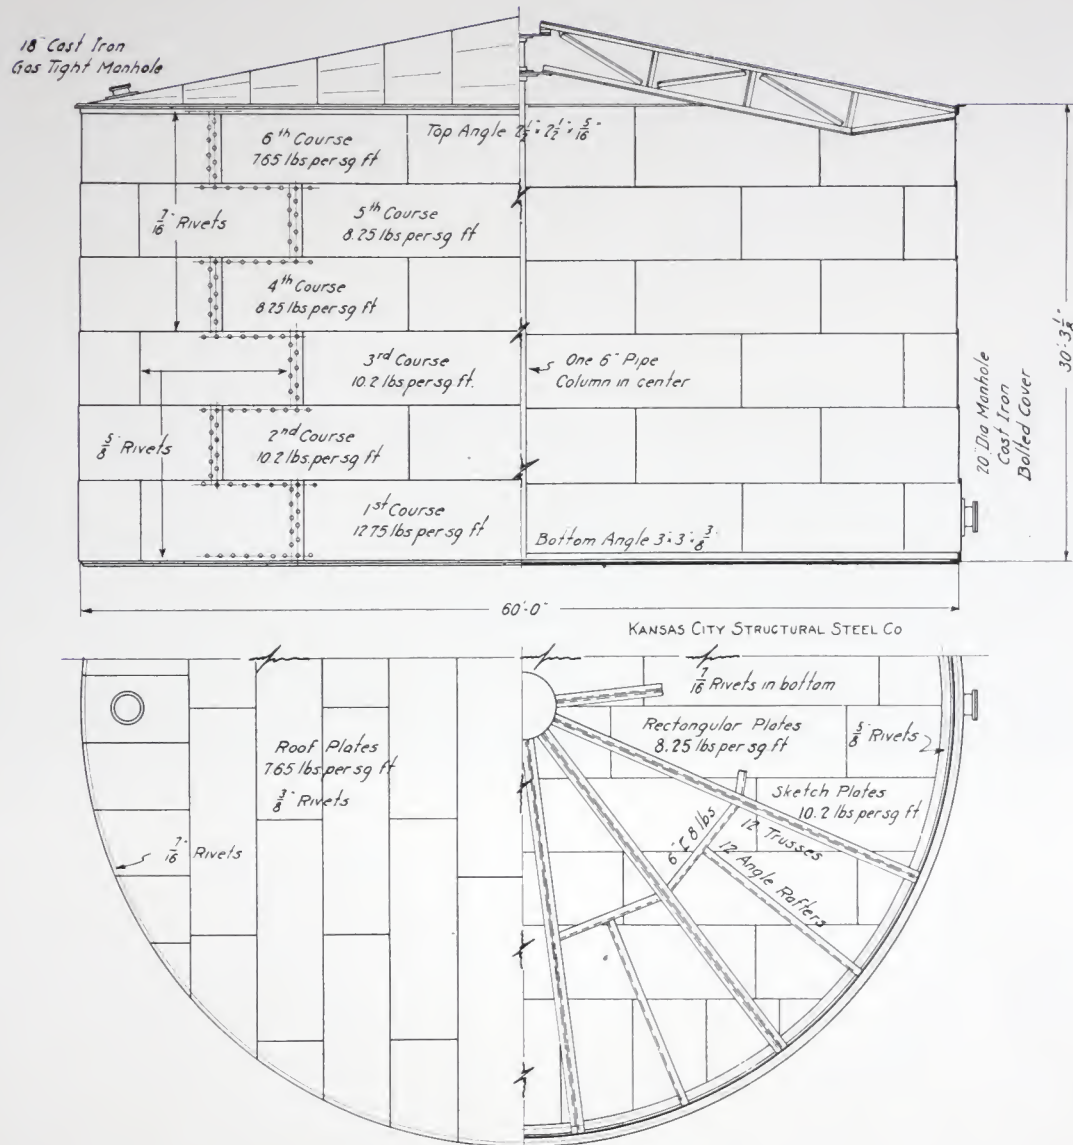 18" Cast Iron
Gas Tight Manhole
6th Course
7.65 lbs per sq ft
Top Angle 2 1/2" x 2 1/2" x 5/16"
7/16" Rivets
5th Course
8.25 lbs per sq ft
4th Course
8.25 lbs per sq ft
3rd Course
10.2 lbs per sq ft.
One 6" Pipe
Column in center
5/8" Rivets
2nd Course
10.2 lbs per sq ft
1st Course
12.75 lbs per sq ft
Bottom Angle 3" x 3" x 3/8"
20" Dia Manhole
Cast Iron
Bolted Cover
30'-3 1/8"
60'-0"
KANSAS CITY STRUCTURAL STEEL CO
7/16" Rivets in bottom
Rectangular Plates
8.25 lbs per sq ft
5/8" Rivets
Roof Plates
7.65 lbs per sq ft
3/8" Rivets
Sketch Plates
10.2 lbs per sq ft
7/16" Rivets
6" [ 8 lbs
12 Trusses
12 Angle Rafters